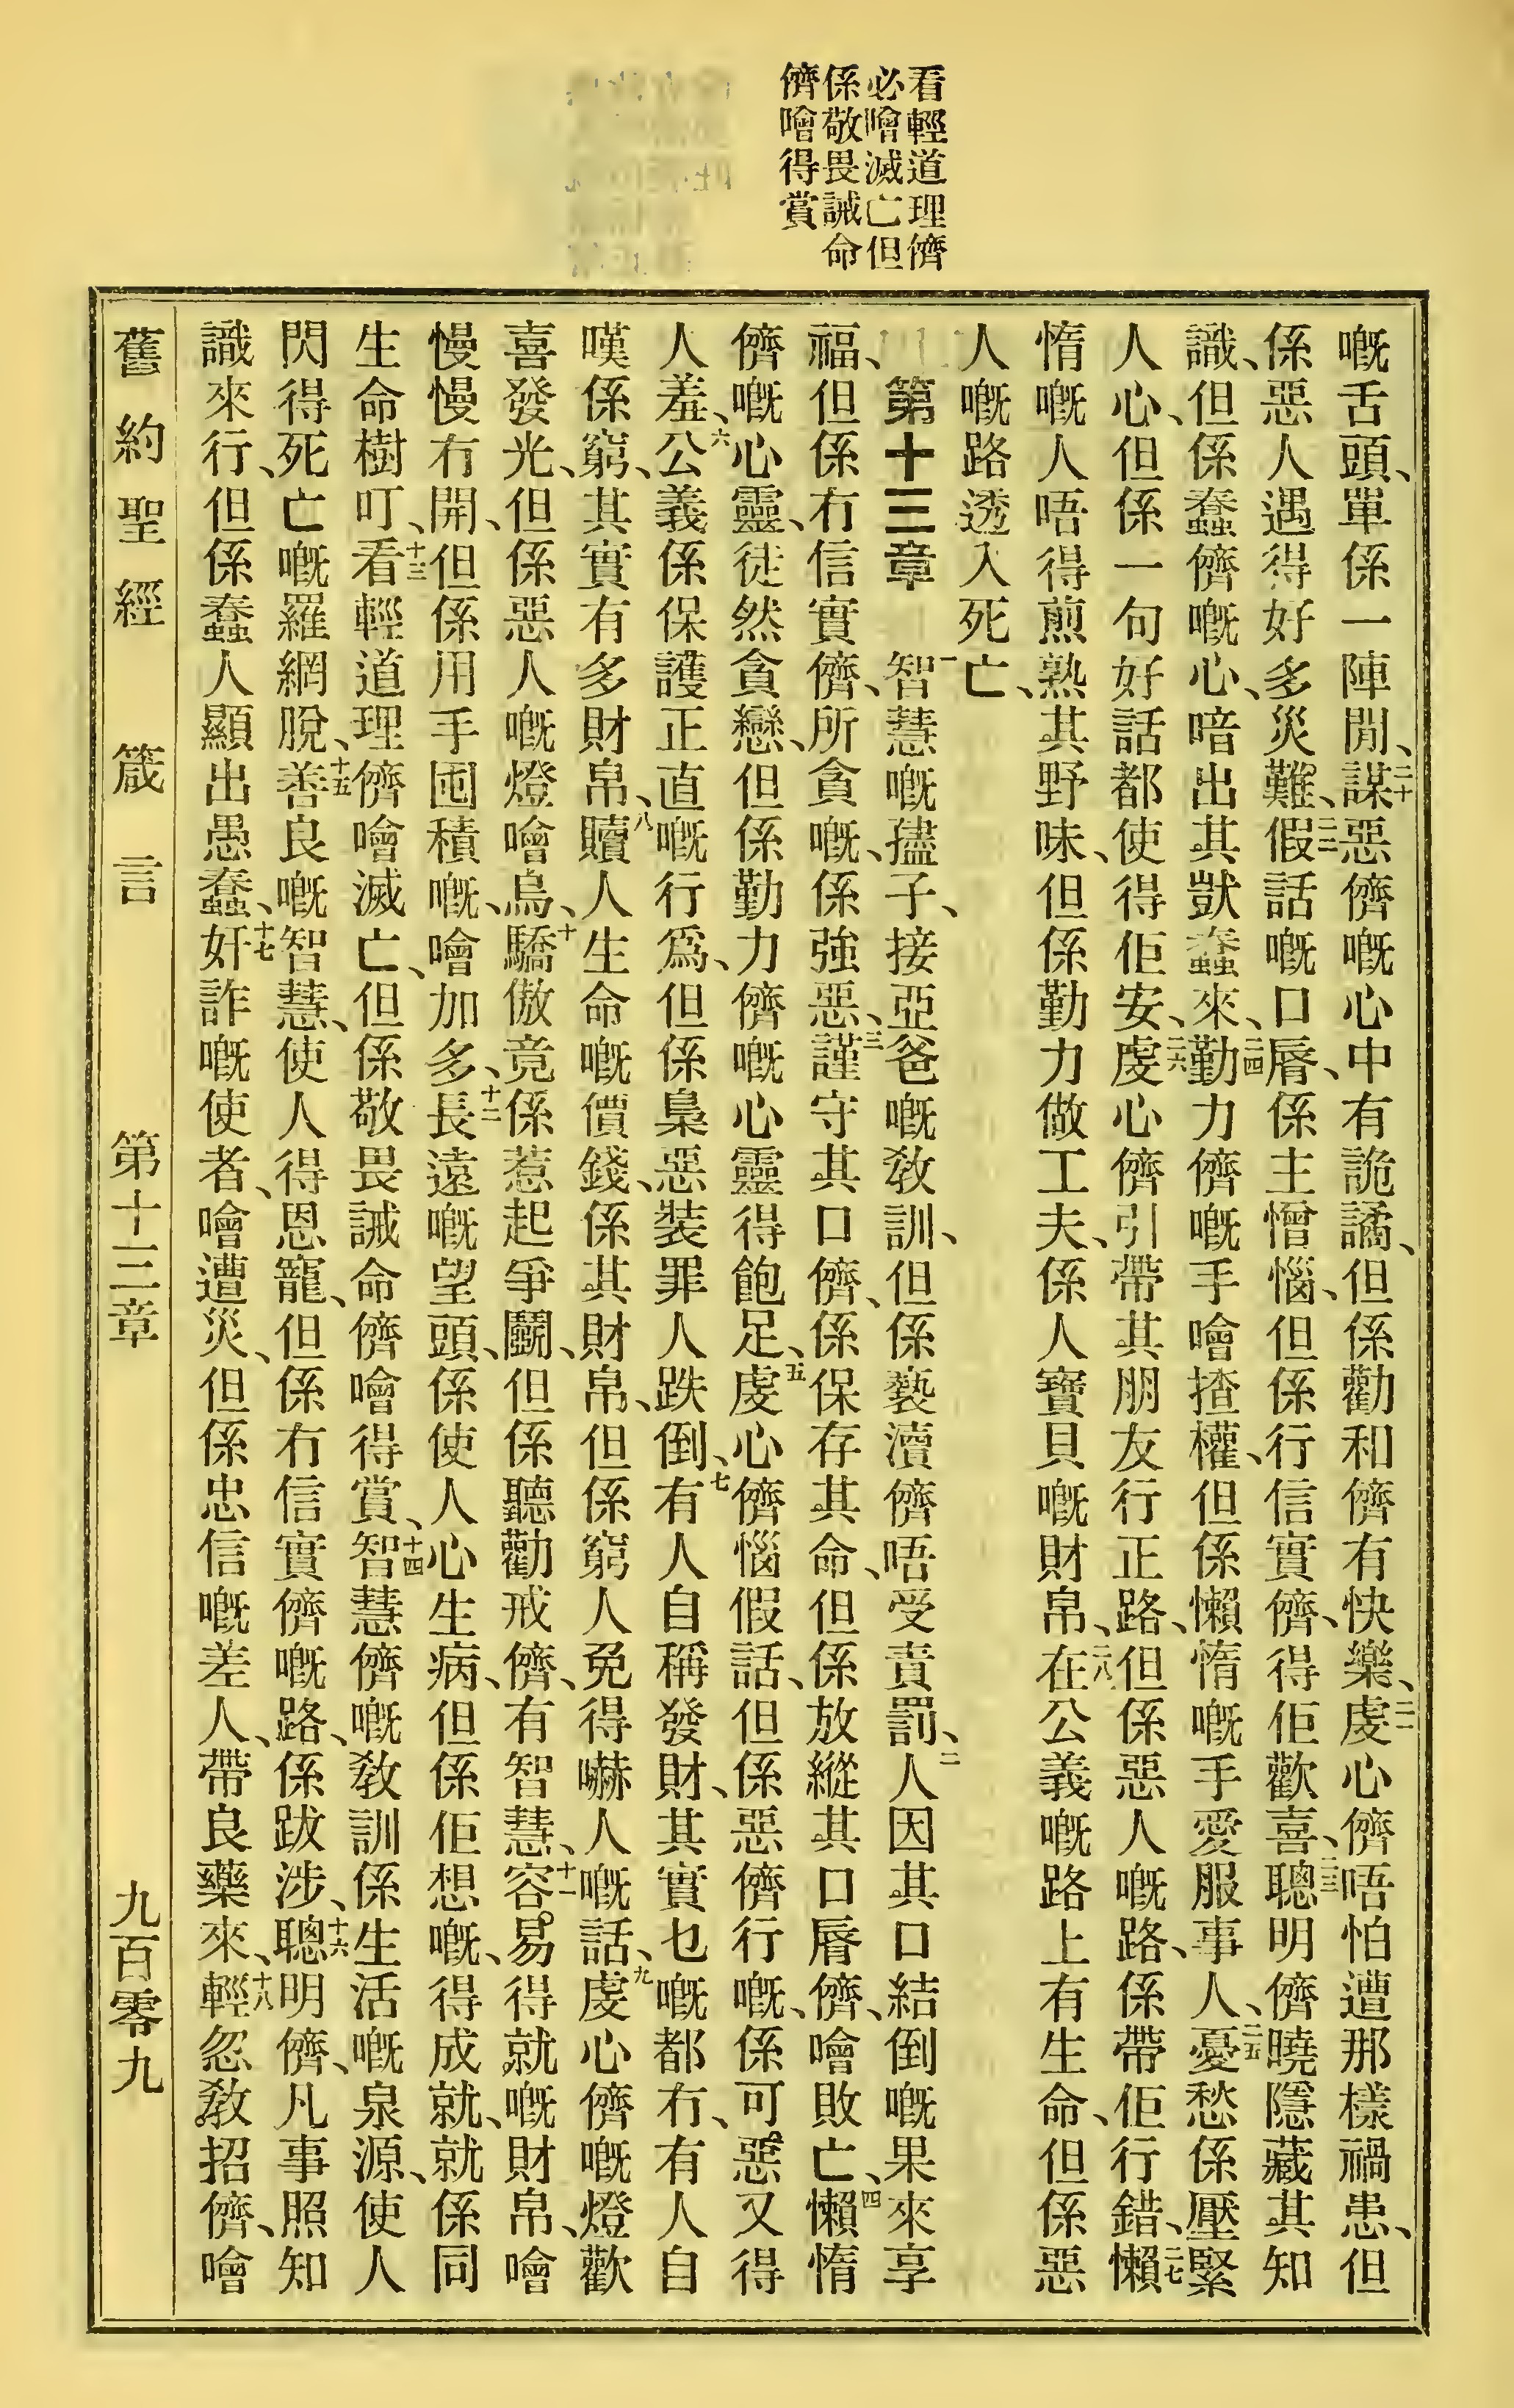 看輕道理儕
必噲滅亡但
係敬畏誡命
儕噲得賞
嘅舌頭、單係一陣閒、二十謀惡儕嘅心中有詭譎、但係勸和儕有快樂、二一虔心儕唔怕遭那樣禍患、但
係惡人遇得好多災難、二二假話嘅口脣、係主憎惱、但係行信實儕、得佢歡喜、二三聰明儕曉隱藏其知
識、但係蠢儕嘅心、喑出其獃蠢來、二四勤力儕嘅手噲揸權、但係懶惰嘅手愛服事人、二五憂愁係壓緊
人心、但係一句好話都使得佢安、二六虔心儕、引帶其朋友行正路、但係惡人嘅路、係帶佢行錯、二七懶
惰嘅人唔得煎熟其野味、但係勤力做工夫、係人寶貝嘅財帛、二八在公義嘅路上有生命、但係惡
人嘅路透入死亡、
第十三章 一智慧嘅孻子、接亞爸嘅教訓、但係褻瀆儕唔受責罰、二人因其口結倒嘅果來享
福、但係冇信實儕、所貪嘅、係強惡、三謹守其口儕、係保存其命、但係放縱其口脣儕、噲敗亡、四懶惰
儕嘅心靈、徒然貪戀、但係勤力儕嘅心靈得飽足、五虔心儕惱假話、但係惡儕行嘅、係可惡又得
人羞、六公義係保護正直嘅行爲、但係梟惡裝罪人跌倒、七有人自稱發財、其實乜嘅都冇、有人自
嘆係窮、其實有多財帛、八贖人生命嘅價錢、係其財帛、但係窮人免得嚇人嘅話、九虔心儕嘅燈歡
喜發光、但係惡人嘅燈噲烏、十驕傲竟係惹起爭鬭、但係聽勸戒儕、有智慧、十一容易得就嘅財帛、噲
慢慢冇開、但係用手囥積嘅、噲加多、十二長遠嘅望頭、係使人心生病、但係佢想嘅、得成就、就係同
生命樹叮、十三看輕道理儕噲滅亡、但係敬畏誡命儕噲得賞、十四智慧儕嘅教訓係生活嘅泉源、使人
閃得死亡嘅羅網脫、十五善良嘅智慧、使人得恩寵、但係冇信實儕嘅路、係跋涉、十六聰明儕、凡事照知
識來行、但係蠢人顯出愚蠢、十七奸詐嘅使者、噲遭災、但係忠信嘅差人、帶良藥來、十八輕忽教招儕、噲
舊約聖經 箴言 第十三章 九百零九